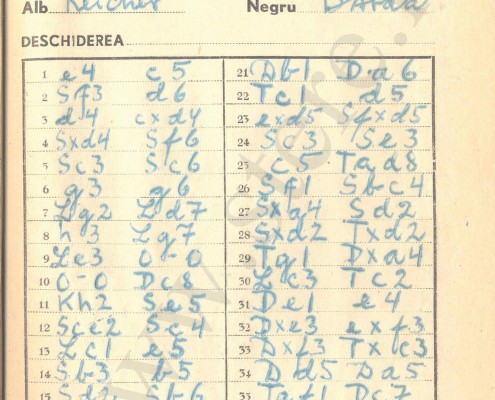 Alb Reicher Negru
DESCHIDEREA
1 e4 c5
2 Sf3 d6
3 d4 cxd4
4 Sxd4 Sf6
5 Sc3 Sc6
6 g3 g6
7 Lg2 Ld7
8 h3 Lg7
9 Le3 0-0
10 0-0 Dc8
11 Kh2 Se5
12 Sce2 Sc4
13 Lc1 e5
14 Sb3 b5
15 Sd2 Sb6
21 Db1 Da6
22 Tc1 d5
23 exd5 Sfxd5
24 Sc3 Se3
25 c5 Tad8
26 Sf1 Sbc4
27 Sxa4 Sd2
28 Sxd2 Txd2
29 Tg1 Dxa4
30 Lc3 Tc2
31 De1 e4
32 Dxe3 exf3
33 Dxf3 Txc3
34 Dd5 Da5
35 Taf1 Dc7